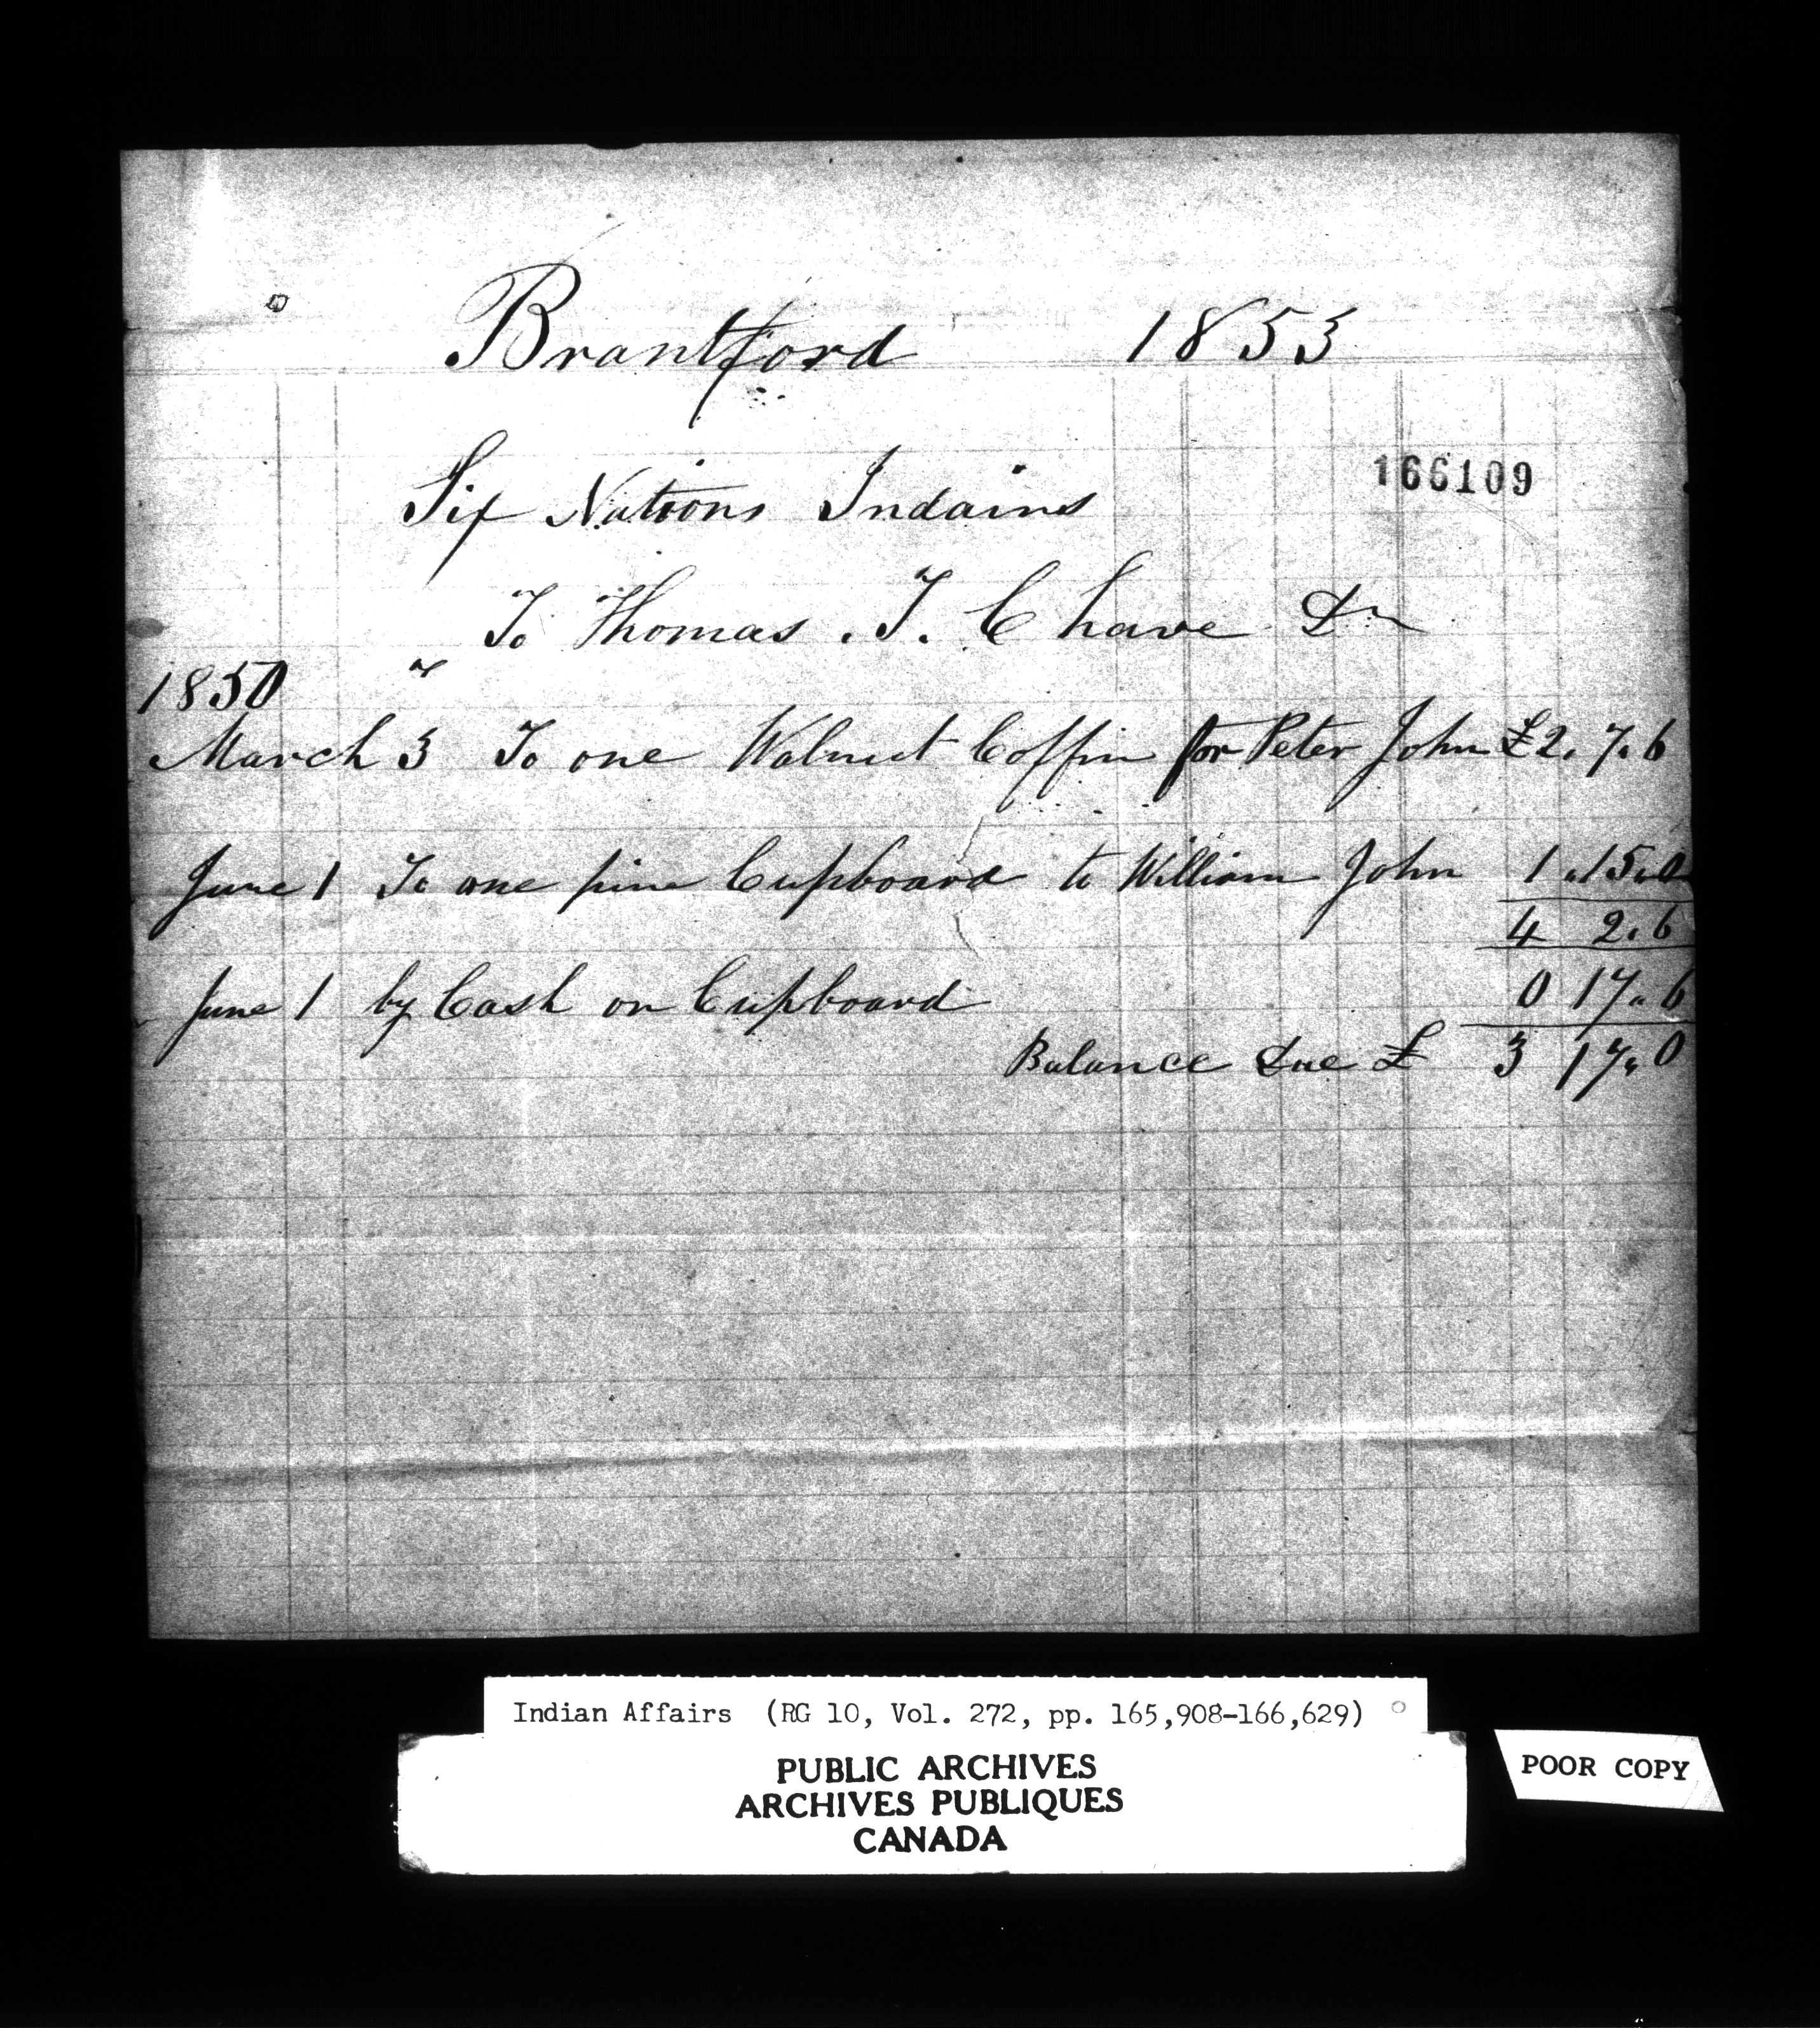 Brantford 1853
166109
Six Nations Indains
To Thomas . T. Chave Dr
1850
March 3 To one Walnut Coffin for Peter John £2. 7. 6
June 1 To one pine Cupboard to William John 1.15.0
4 2.6
June 1 by Cash on Cupboard 0 17.6
Balance Due £ 3 17.0
Indian Affairs (RG 10, Vol. 272, pp. 165,908-166,629)
PUBLIC ARCHIVES
ARCHIVES PUBLIQUES
CANADA
POOR COPY